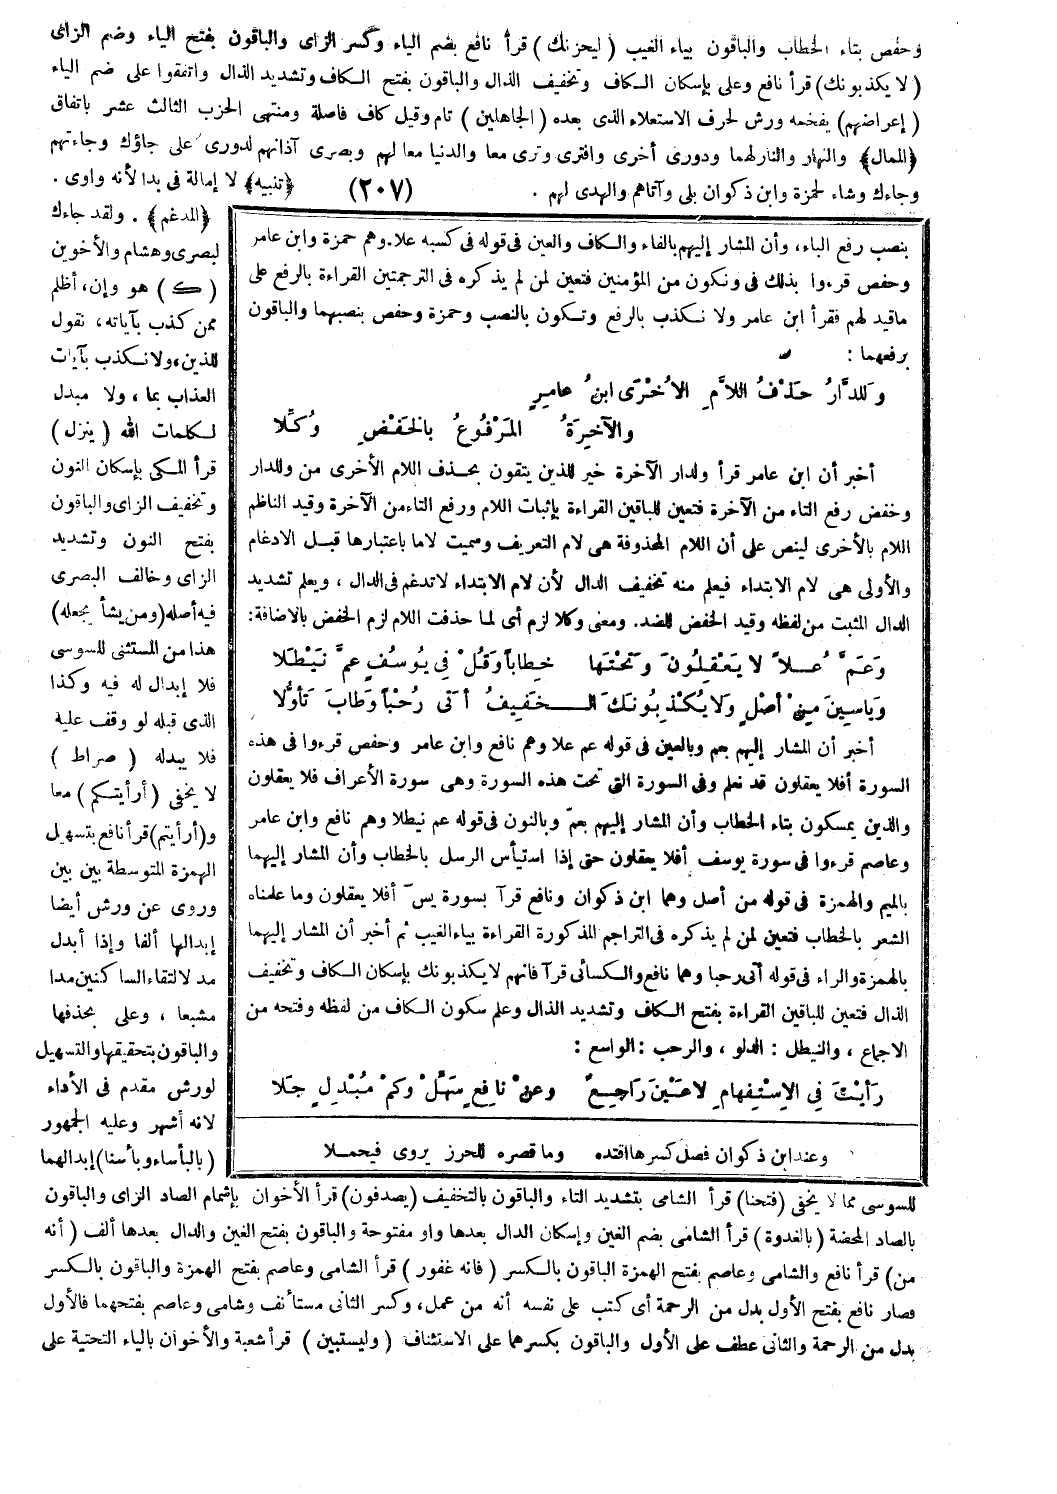 وحفص بتاء الخطاب والباقون بياء الغيب ( ليحزنك ) قرأ نافع بضم الياء وكسر الزاى والباقون بفتح الياء وضم الزاى
( لا يكذبونك) قرأ نافع وعلى بإسكان الكاف وتخفيف الذال والباقون بفتح الكاف وتشديد الذال واتفقوا على ضم الياء
( إعراضهم) يفخمه ورش لحرف الاستعلاء الذى بعده ( الجاهلين ) تام وقيل كاف فاصلة ومنتهى الحزب الثالث عشر باتفاق
﴿الممال﴾ والنهار والنار لهما ودورى أخرى وافترى وترى معا والدنيا معا لهم وبصرى آذانهم لدورى على جاؤك وجاءتهم
وجاءك وشاء لحمزة وابن ذكوان بلى وآتاهم والهدى لهم . (٢٠٧) ﴿تنبيه﴾ لا إمالة فى بدا لأنه واوى .
بنصب رفع الباء، وأن المشار إليهم بالفاء والكاف والعين فى قوله فى كسبه علا. وهم حمزة وابن عامر
وحفص قرءوا بذلك فى ونكون من المؤمنين فتعين لمن لم يذكره فى الترجمتين القراءة بالرفع على
ماقيد لهم فقرأ ابن عامر ولا نكذب بالرفع وتكون بالنصب وحمزة وحفص بنصبهما والباقون
برفعهما :
وَللدَّارُ حَذْفُ اللاَّمِ الاُخْرَى ابنُ عامِرٍ
والآخِرَةُ المَرْفُوعُ بالخَفْضِ وُكِّلا
أخبر أن ابن عامر قرأ ولدار الآخرة خير للذين يتقون بحذف اللام الأخرى من وللدار
وخفض رفع التاء من الآخرة فتعين للباقين القراءة بإثبات اللام ورفع التاء من الآخرة وقيد الناظم
اللام بالأخرى لينص على أن اللام المحذوفة هى لام التعريف وسميت لاما باعتبارها قبل الادغام
والأولى هى لام الابتداء فيعلم منه تخفيف الدال لأن لام الابتداء لاتدغم فى الدال ، ويعلم تشديد
الدال المثبت من لفظه وقيد الخفض للضد. ومعنى وكلا لزم أى لما حذفت اللام لزم الخفض بالاضافة:
وَعَمَّ عُلاً لا يَعْقِلُونَ وَتحْتَها خِطاباً وَقُلْ فِي يُوسُفٍ عَمَّ نَيْطَلا
وَياسِينَ مِنْ أصْلٍ وَلا يُكْذِبُونَكَ الْـخَفِيفُ أتى رُحْباً وَطابَ تَأوُّلا
أخبر أن المشار إليهم بعم وبالعين فى قوله عم علا وهم نافع وابن عامر وحفص قرءوا فى هذه
السورة أفلا يعقلون قد نعلم وفى السورة التى تحت هذه السورة وهى سورة الأعراف فلا يعقلون
والذين يمسكون بتاء الخطاب وأن المشار إليهم بعمّ وبالنون فى قوله عم نيطلا وهم نافع وابن عامر
وعاصم قرءوا فى سورة يوسف أفلا يعقلون حتى إذا استيأس الرسل بالخطاب وأن المشار إليهما
بالميم والهمزة فى قوله من أصل وهما ابن ذكوان ونافع قرآ بسورة يسۤ أفلا يعقلون وما علمناه
الشعر بالخطاب فتعين لمن لم يذكره فى التراجم المذكورة القراءة بياء الغيب ثم أخبر أن المشار إليهما
بالهمزة والراء فى قوله أتى رحبا وهما نافع والكسائى قرآ فانهم لا يكذبونك بإسكان الكاف وتخفيف
الذال فتعين للباقين القراءة بفتح الكاف وتشديد الذال وعلم سكون الكاف من لفظه وفتحه من
الاجماع ، والنيطل : الدلو ، والرحب : الواسع :
رَأيْتَ فِي الاِسْتِفْهامِ لا عَيْنَ رَاجِعٌ وعنْ نافِعٍ سَهِّلْ وكمْ مُبْدِلٍ جَلا
وعند ابن ذكوان فصل كسرها اقتده وما قصره للحرز يروى فيحملا
﴿المدغم﴾ . ولقد جاءك
لبصرى وهشام والأخوين
( ك ) هو وإن، أظلم
ممن كذب بآياته، نقول
للذين، ولا نكذب بآيات
العذاب بما ، ولا مبدل
لكلمات الله ( ينزل )
قرأ المكى بإسكان النون
وتخفيف الزاى والباقون
بفتح النون وتشديد
الزاى وخالف البصرى
فيه أصله (ومن يشأ يجعله)
هذا من المستثنى للسوسى
فلا إبدال له فيه وكذا
الذى قبله لو وقف عليه
فلا يبدله ( صراط )
لا يخفى ( أرأيتكم ) معا
و(أرأيتم) قرأ نافع بتسهيل
الهمزة المتوسطة بين بين
وروى عن ورش أيضا
إبدالها ألفا وإذا أبدل
مد لالتقاء الساكنين مدا
مشبعا ، وعلى بحذفها
والباقون بتحقيقها والتسهيل
لورش مقدم فى الأداء
لانه أشهر وعليه الجمهور
( بالبأساء وبأسنا) إبدالهما
للسوسى مما لا يخفى (فتحنا) قرأ الشامى بتشديد التاء والباقون بالتخفيف (يصدفون) قرأ الأخوان بإشمام الصاد الزاى والباقون
بالصاد المحضة ( بالغدوة ) قرأ الشامى بضم الغين وإسكان الدال بعدها واو مفتوحة والباقون بفتح الغين والدال بعدها ألف ( أنه
من) قرأ نافع والشامى وعاصم بفتح الهمزة الباقون بالكسر ( فانه غفور ) قرأ الشامى وعاصم بفتح الهمزة والباقون بالكسر
فصار نافع بفتح الأول بدل من الرحمة أى كتب على نفسه أنه من عمل، وكسر الثانى مستأنف وشامى وعاصم بفتحهما فالأول
بدل من الرحمة والثانى عطف على الأول والباقون بكسرهما على الاستئناف ( وليستبين ) قرأ شعبة والأخوان بالياء التحتية على